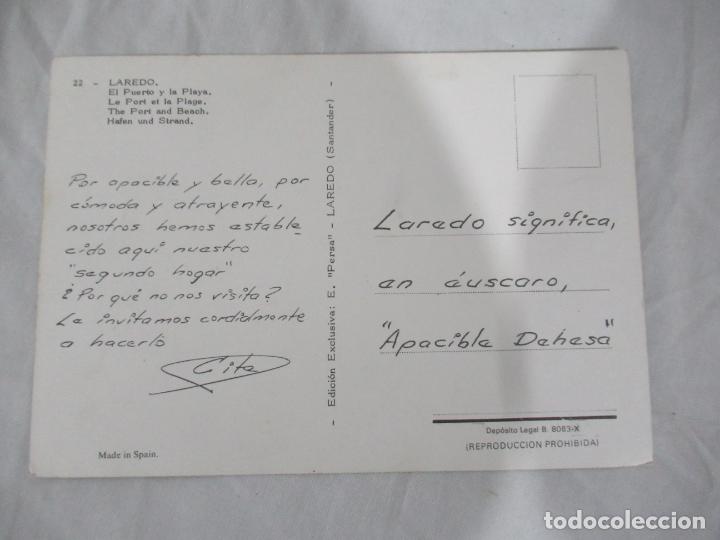 22 - LAREDO.
El Puerto y la Playa.
Le Port et la Plage.
The Port and Beach.
Hafen und Strand.
Por apacible y bella, por
cómoda y atrayente,
nosotros hemos estable_
cido aquí nuestro
"segundo hogar"
¿Por qué no nos visita?
Le invitamos cordialmente
a hacerlo
Cita
Made in Spain.
- Edición Exclusiva: E. "Persa" - LAREDO (Santander) -
Laredo significa,
en éuscaro,
"Apacible Dehesa"
Depósito Legal B. 8083-X
(REPRODUCCION PROHIBIDA)
todocoleccion.net